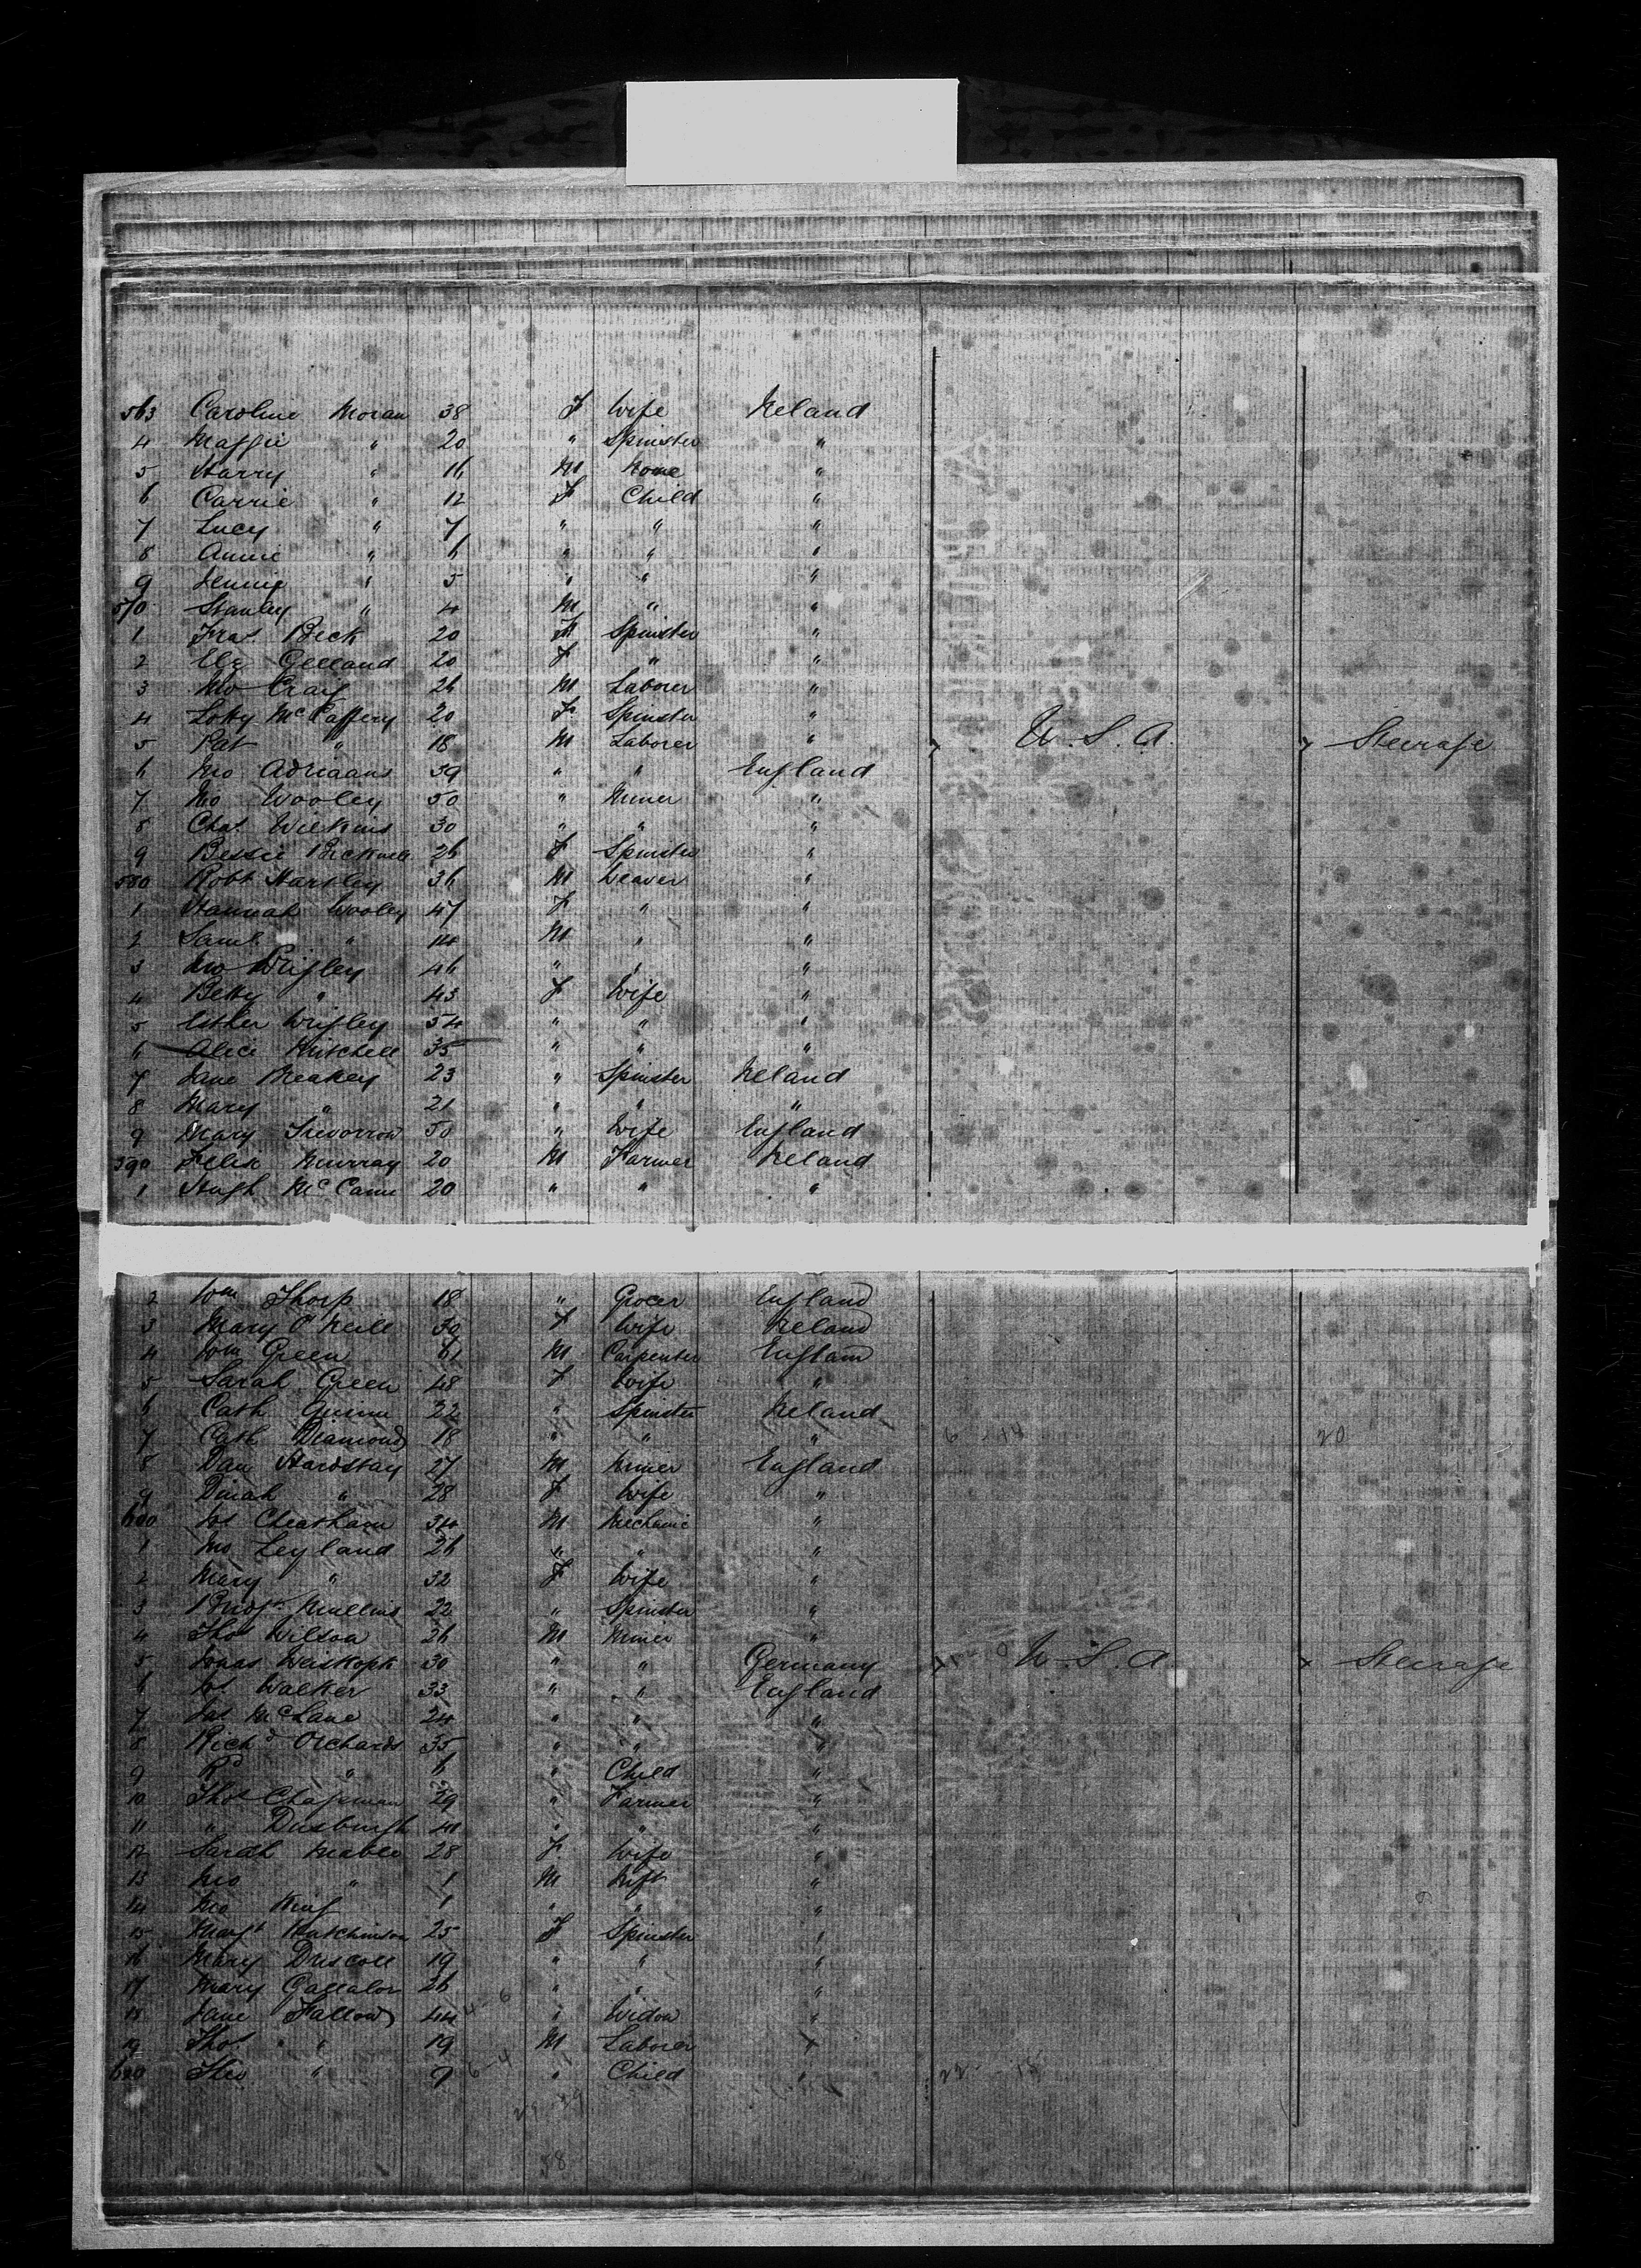 563 Caroline Moran 38 F Wife Ireland
4 Maggie " 20 " Spinster "
5 Harry " 16 M None "
6 Carrie " 12 F Child "
7 Lucy " 7 " " "
8 Annie " 6 " " "
9 Jenny " 5 " " "
570 Stanley " 4 M " "
1 Fras Beck 20 F Spinster "
2 Eliz Gelland 20 F " "
3 Jno Craig 26 M Laborer "
4 Lotty McCaffery 20 F Spinster "
5 Pat " 18 M Laborer " U.S.A. Steerage
6 Jno Adriaans 39 " " England
7 Jno Wooley 50 " Miner "
8 Chas Wilkins 30 " " "
9 Bessie 26 F Spinster "
580 Robt Hartley 36 M Weaver "
1 Hannah Wooley 47 F " "
2 Saml " 14 M " "
3 Jno Wrigley 46 " " "
4 Betty " 43 F Wife "
5 Esther Wrigley 54 " " "
6 Alice Mitchell 35 " " "
7 Jane Breakey 23 " Spinster Ireland
8 Mary " 21 " " "
9 Mary Trevorrow 50 " Wife England
590 Felix Murray 20 M Farmer Ireland
1 Hugh McCann 20 " " "
2 Wm Thorp 18 " Grocer England
3 Mary O'Neill 30 F Wife Ireland
4 Wm Green 61 M Carpenter England
5 Sarah Green 48 F Wife "
6 Cath Quinn 22 " Spinster Ireland
7 Cath Diamond 18 " " " 6 - 14 20
8 Dan Hardstay 27 M Miner England
9 Dinah " 28 F Wife "
600 Jos Cheatham 34 M Mechanic "
1 Jno Leyland 26 " " "
2 Mary " 32 F Wife "
3 Bridgt Mullins 22 " Spinster "
4 Thos Wilson 26 M Miner "
5 Jonas Weiskopk 30 " " Germany U.S.A. Steerage
6 Jos Walker 33 " " England
7 Jas McLane 24 " " "
8 Richd Orchards 35 " " "
9 Rd " 6 " Child "
10 Thos Chapman 29 " Farmer "
11 " Duxburgh 40 " " "
12 Sarah Mable 28 F Wife "
13 Jno " 1 M Inft "
14 Jno King 1 " " "
15 Margt Hutchinson 25 F Spinster "
16 Mary Driscoll 19 " " "
17 Mary 26 " " "
18 Jane Fallows 44 " Widow "
19 Thos " 19 M Laborer "
620 Theo " 9 " Child "